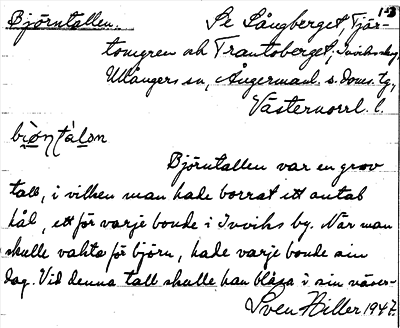 Björntallen. Se Långberget, Tjär- 1-3
tomgren och Trantoberget, Inviks by,
Ullångers sn, Ångermanl. s. Doms. tg,
Västernorrl. l.
biòntàlon
Björntallen var en grov
tall, i vilken man hade borrat ett antal
hål, ett för varje bonde i Inviks by. När man
skulle vakta för björn, hade varje bonde sin
dag. Vid denna tall skulle han blåsa i sin näver-
Sven Hiller 1947.